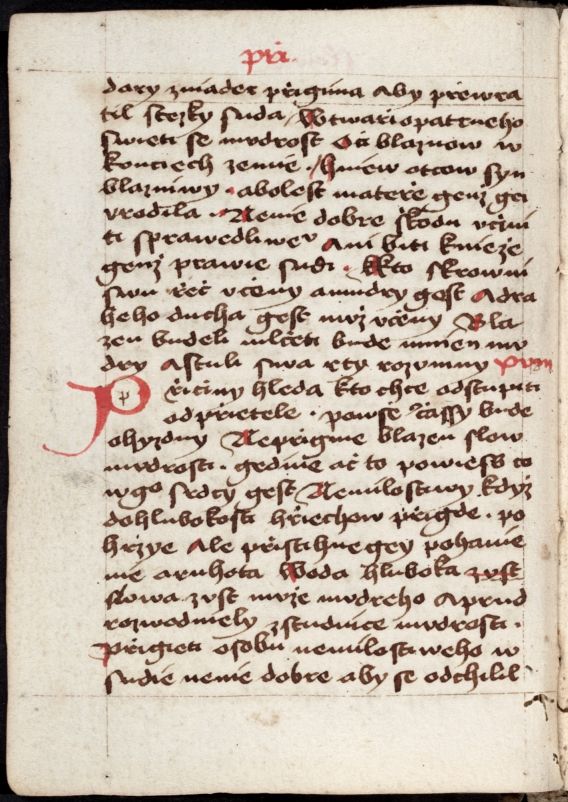 při
dary zniader přigima aby přewra
til stezky suda / W twari opatrneho
swieti se mudrost Oči blaznow w
končiech zemie . / hniew otcow syn
blazniwy . a bolest mateře genz gei
vrodila . Nenie dobre škodu včini
ti sprawedliwer Ani biti knieže
genž prawie sudi . kto skrowni
swu řeč vceny a mudry gest A dra
heho ducha gest muž včeny Bla
zen budeli mlčeti bude mnien mu
dry A stuli swa rty rozumny XVIII
Přičiny hleda kto chce odstupiti
od prietele . po wse čassy bude
ohyzdny Nepřigme blazen slow
mudrosti . gedine ač to powiess co
w geo srdcy gest Nemilostiwy když
do hlubokosti hřiechow přigde . po
hrzye Ale přistihne gey pohanie
nie a ruhota Woda hluboka z vst
slowa z vst muže mudreho A prud
rozwedniely z studnice mudrosti .
přigieti osobu nemilostiweho w
sudie nenie dobre aby se odchilil